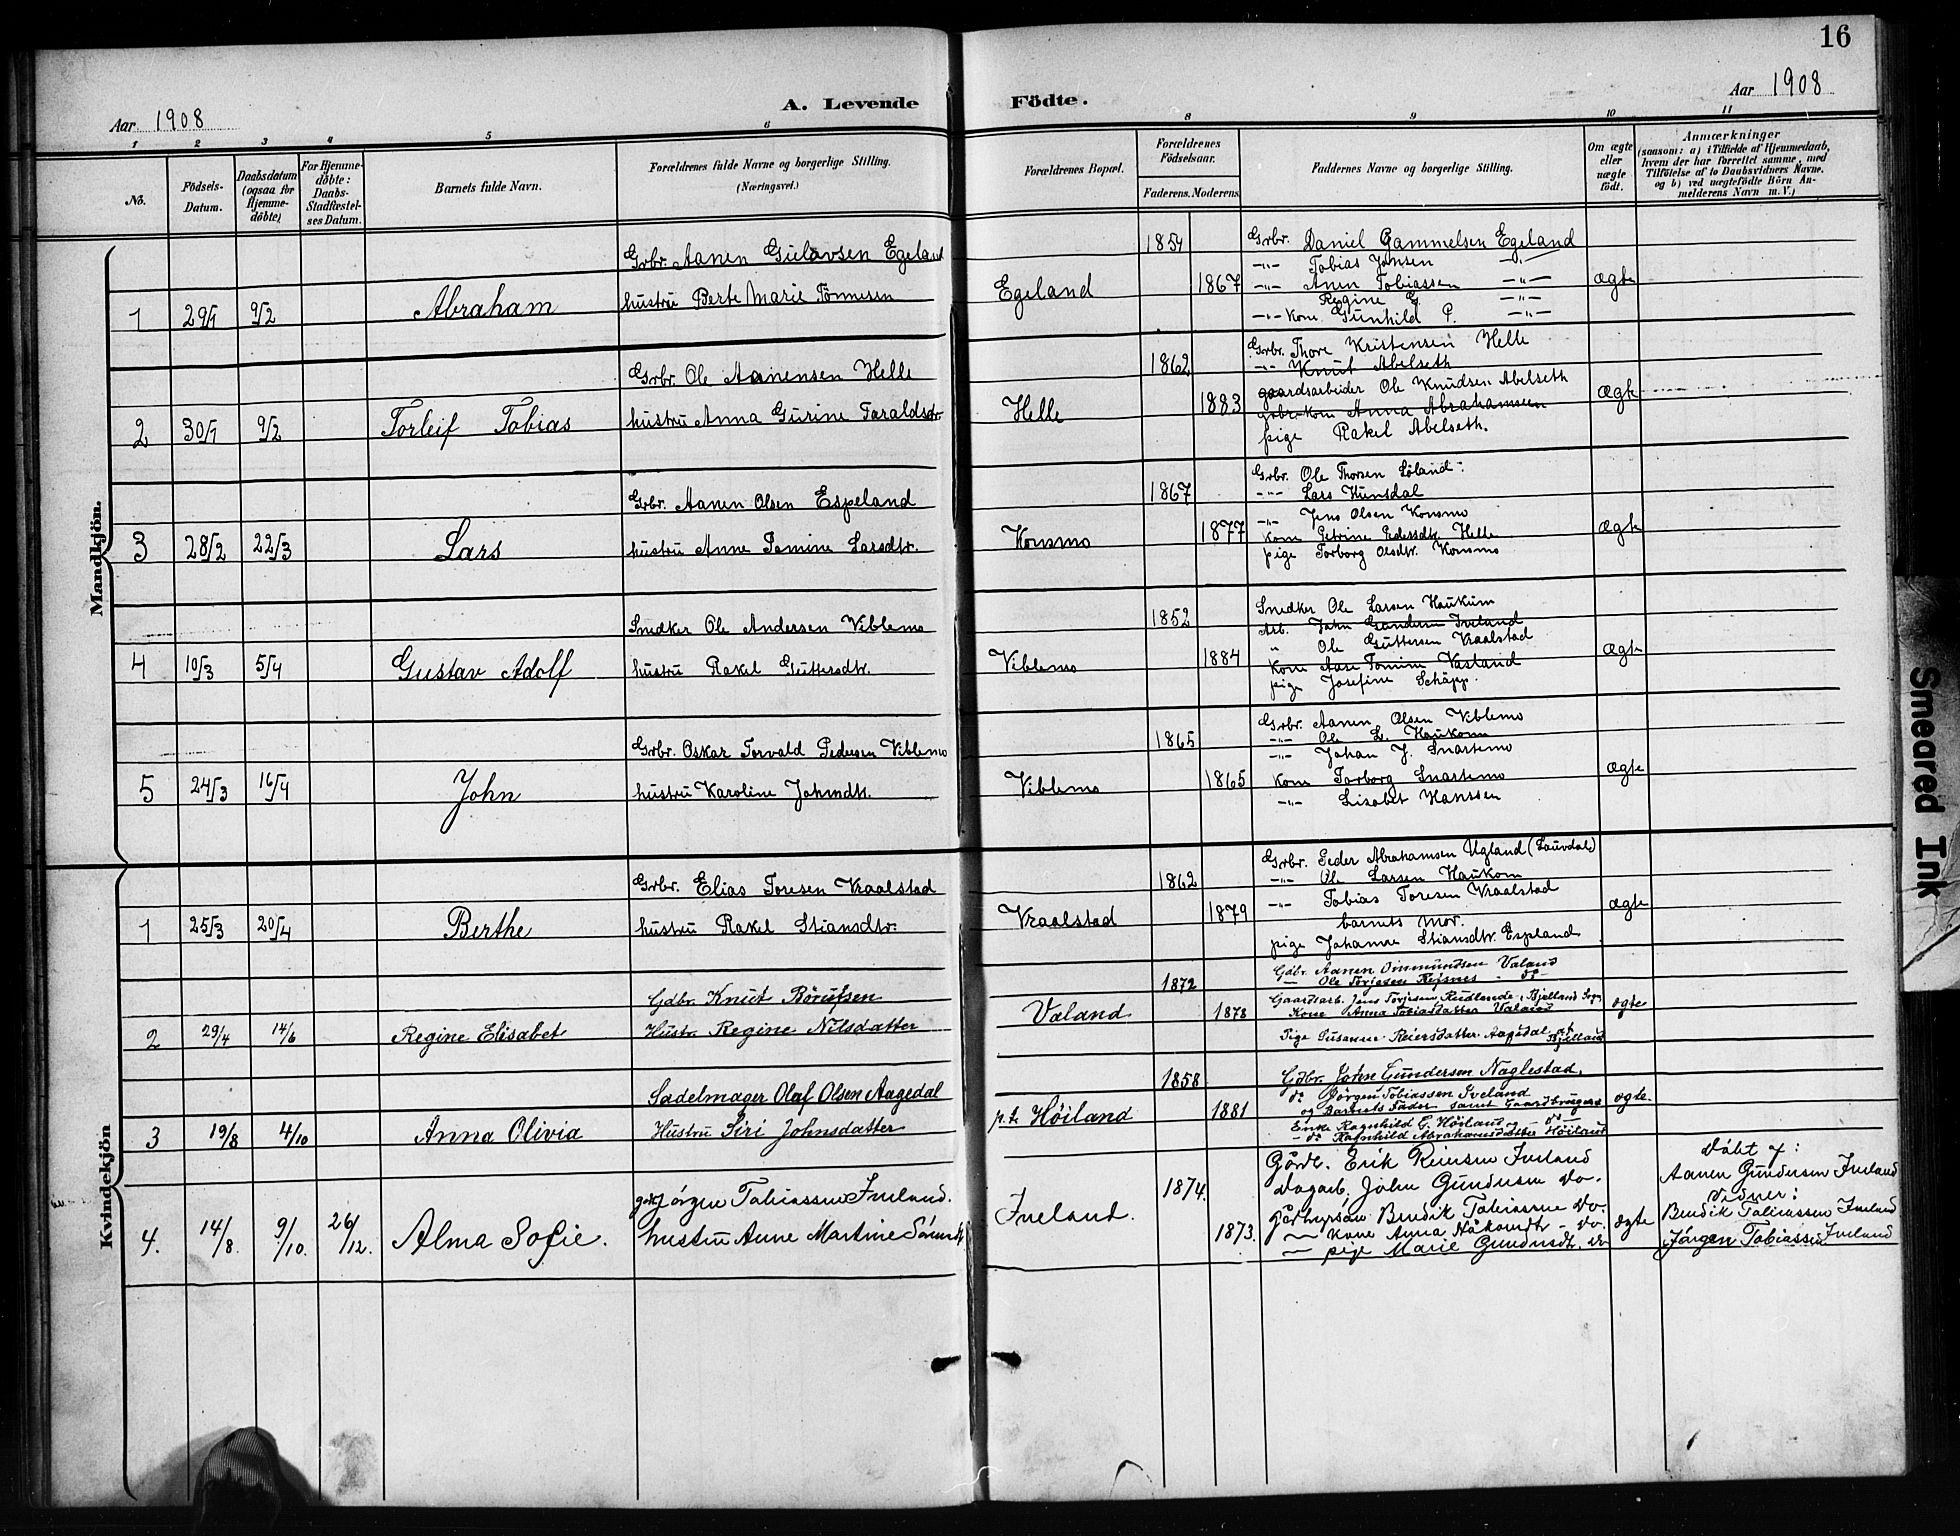 16
Aar 1908
A. Levende
Födte.
Aar 1908
1 2 3 4 5 6 8 9 10 11
No.
Födsels-Datum.
Daabsdatum (ogsaa for Hjemme-döbte)
For Hjemme-döbte: Daabs-Stadfæstel-ses Datum.
Barnets fulde Navn.
Forældrenes fulde Navne og borgerlige Stilling.
(Næringsvei.)
Forældrenes Bopæl.
Forældrenes Födselsaar.
Faderens. Moderens.
Faddernes Navne og borgerlige Stilling.
Om ægte eller uægte födt.
Anmærkninger
(saasom: a) i Tilfælde af Hjemmedaab,
hvem der har forrettet samme, med
Tilföielse af to Daabsvidners Navne,
og b) ved uægtefödte Börn An-
melderens Navn m. V.)
Mandkjön.
1 29/1 9/2 Abraham
Grbr. Aanen Gulovsen Egeland
hustru Berte Marie Tönnesen
Egeland
1854
1867
Grbr. Daniel Gammelsen Egeland
-"- Tobias Jonsen -"-
-"- Anen Tobiassen -"-
Regine G. -"-
-"- Kone Gunhild P. -"-
ægte
2 30/1 9/2 Torleif Tobias
Grbr. Ole Aanensen Helle
hustru Anna Gurine Taraldsdtr.
Helle
1862
1883
Grbr. Thore Kristensen Helle
-"- Knut Abelseth
gaardsarbeider Ole Knudsen Abelseth
grbr. kone Anna Abrahamsen
pige Rakel Abelseth.
Ægte
3 28/2 22/3 Lars
Grbr. Aanen Olsen Espeland
hustru Anne Tomine Larsdtr.
Konsmo
1867
1877
Grbr. Ole Thorsen Löland
-"- Lars Hunsdal
-"- Jens Olsen Konsmo
kone Petrine Pedersdtr. Helle
pige Torborg Olsdtr. Konsmo
Ægte
4 10/3 5/4 Gustav Adolf
Snedker Ole Andersen Viblemo
hustru Rakel Guttersdtr.
Viblemo
1852
1884
Snedker Ole Larsen Haukum
Arb. John Gundersen Iveland
" Ole Guttersen Vraalstad
Kone Aase Tomine Vasland
pige Josefine Schäpp.
Ægte
5 24/3 16/4 John
Grbr. Oskar Torvald Pedersen Viblemo
hustru Karoline Johnsdtr.
Viblemo
1865
1865
Grbr. Aanen Olsen Viblemo
-"- Ole L. Haukom
-"- Johan J. Snartemo
kone Torborg Snartemo
-"- Lisabet Hanssen
Ægte
Kvindekjön
1 25/3 20/4 Berthe
Grbr. Elias Toresen Vraalstad
hustru Rakel Stiansdtr.
Vraalstad
1862
1879
Grbr. Peder Abrahamsen Ugland (Lauvdal)
-"- Ole Larsen Haukom
-"- Tobias Toresen Vraalstad
barnets mor.
pige Johanne Stiansdtr. Espland
ægte
2 29/4 14/6 Regine Elisabet
Gdbr. Knut Börufsen
Hustr. Regine Nilsdatter
Valand
1872
1878
Gdbr. Aanen Ommundsen Valand
Ole Torjesen do
Gaardsarb. Jens Torjesen Rudlende, Bjelland Sogn
Kone Anna Tobiasdatter Valand
Pige Susanne Reiersdatter Aagedal af Bjelland
ægte
3 19/8 4/10 Anna Olivia
Sadelmager Olaf Olsen Aagedal
Hustru Siri Johnsdatter
p.t. Höiland
1858
1881
Gdbr. John Gundersen Naglestad,
do Jörgen Tobiassen Iveland
og Barnets Fader samt Gaardbrugere
Enke Ragnhild G. Höiland
do Ragnhild Abrahamsdatter Höiland
ægte.
4. 14/8. 9/10. 26/12. Alma Sofie.
gbr. Jörgen Tobiassen Iveland.
hustru Anne Martine
Iveland.
1874.
1873.
Gårdb. Erik Reiersen Iveland
Dagarb. John Gundersen do.
Bendik Tobiassen do.
Kone Anna do.
pige Marie Gundersdt. do
ægte
Döbt af:
Aanen Gundersen Iveland
Vidner:
Bendik Tobiassen Iveland
Jörgen Tobiassen Iveland
Smeared Ink